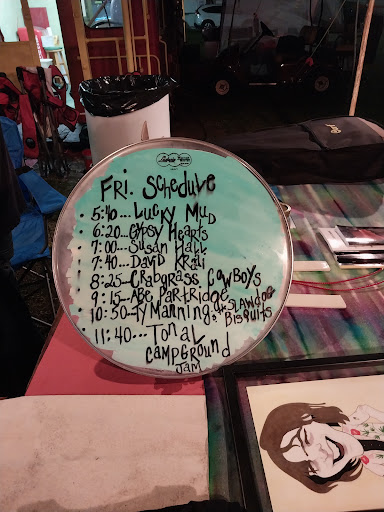 FRI. SCHEDULE
5:40...LUCKY MUD
6:20...GYPSY HEARTS
7:00...SUSAN HALL
7:40...DAVID KRAI
8:25...CRABGRASS COWBOYS
9:15...ABE PARTRIDGE
10:50...TY MANNING & the SLAWDOG BISQUITS
11:40...TONAL
CAMPGROUND
JAM